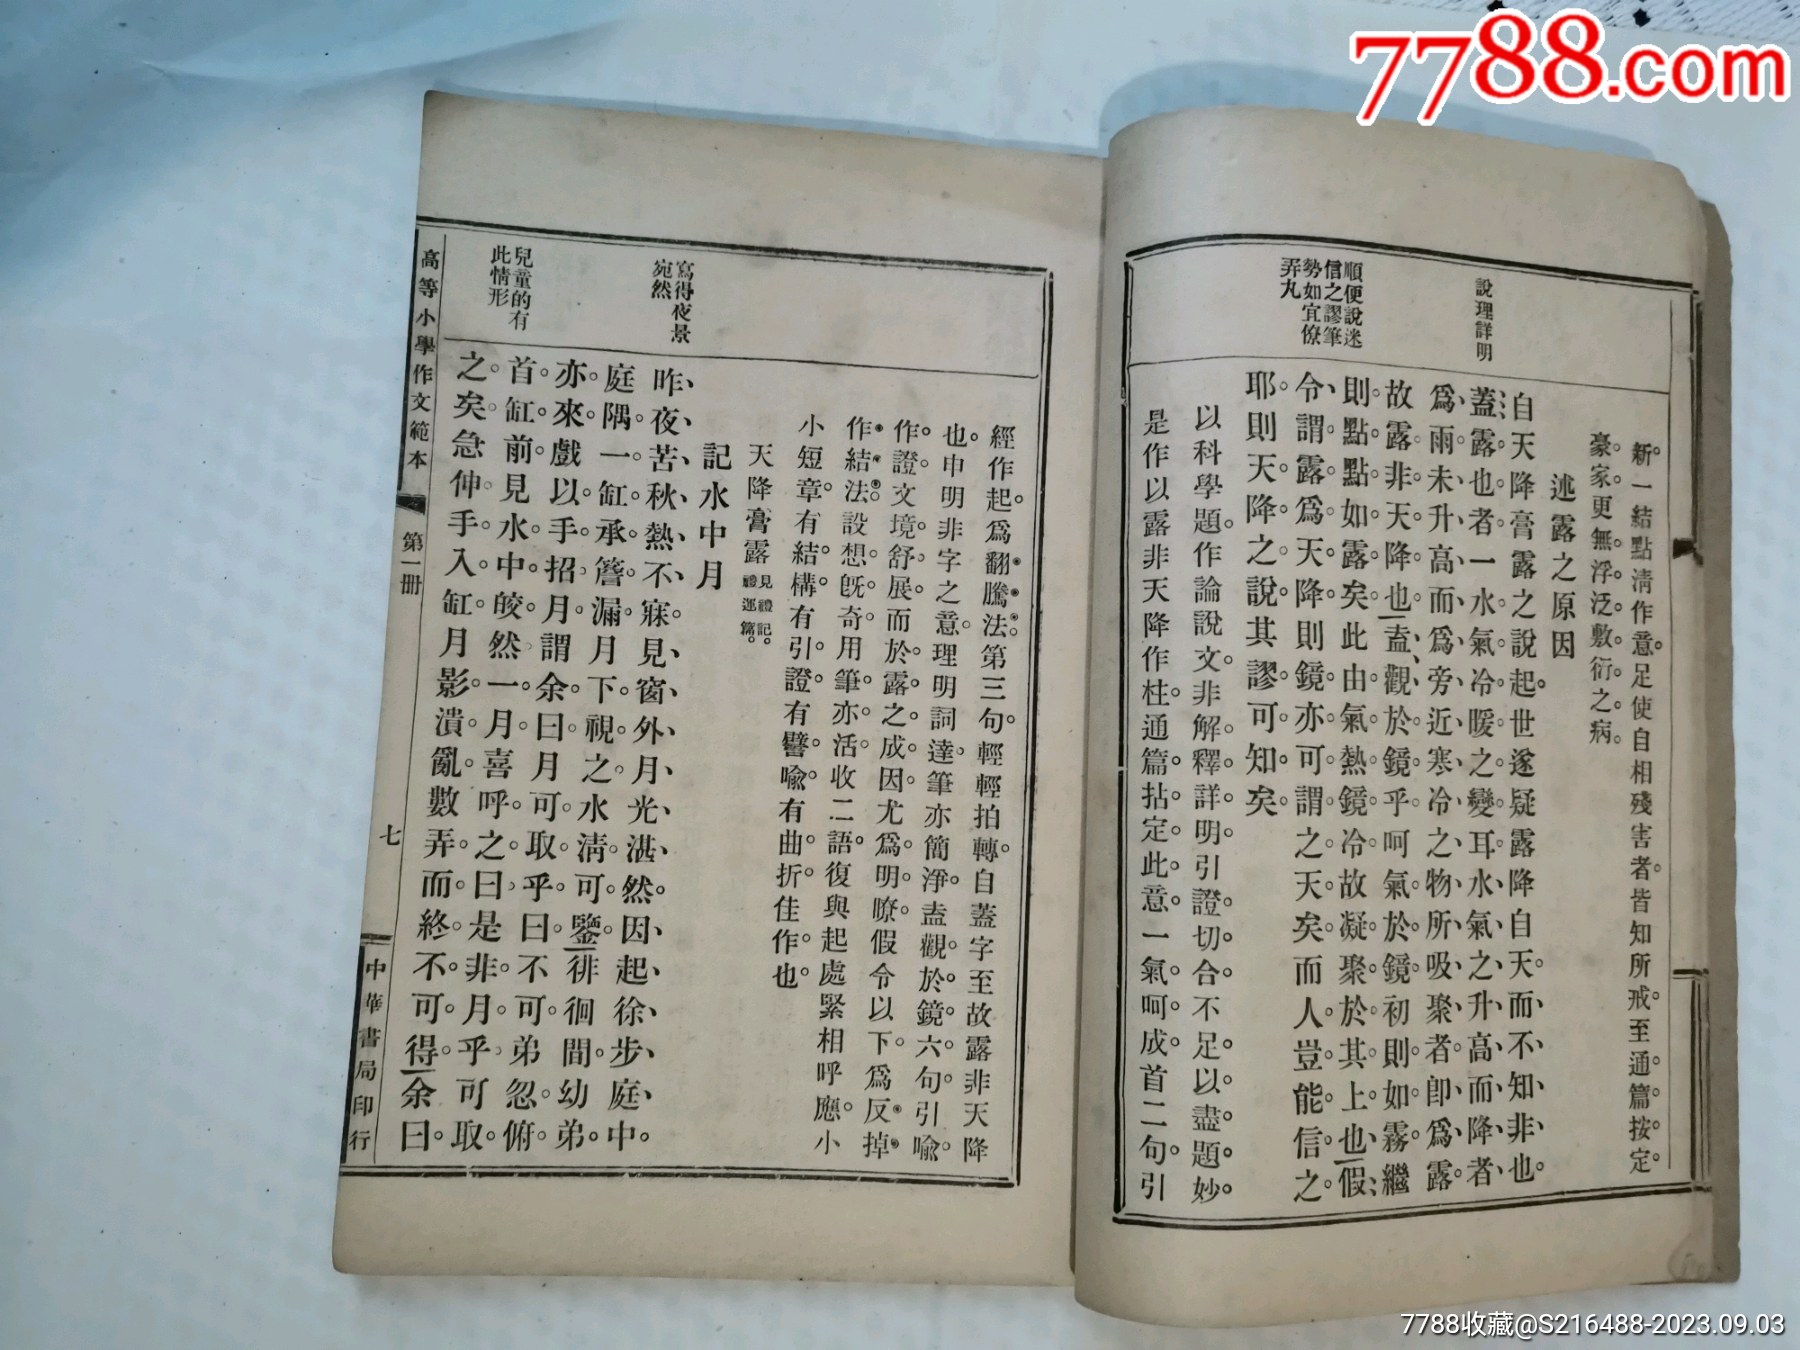 7788.com
說理詳明
順便說迷
信之謬筆
勢如宜僚
弄丸
新。一結點清作意。足使自相殘害者。皆知所戒。至通篇按定。
豪家。更無浮泛敷衍之病。
述露之原因
自天降膏露之說起。世遂疑露降自天。而不知非也。
蓋露也者、一水氣冷暖之變耳、水氣之升高而降者、
爲雨、未升高而爲旁近寒冷之物、所吸聚者、卽爲露。
故露非天降也。盍觀於鏡乎。呵氣於鏡。初則如霧。繼
則點點如露矣。此由氣熱鏡冷。故凝聚於其上也。假、
令謂露爲天降。則鏡亦可謂之天矣。而人豈能信之。
耶。則天降之說。其謬可知矣。
以科學題。作論說文。非解釋詳明。引證切合。不足以盡題妙。
是作以露非天降作柱。通篇拈定此意。一氣呵成。首二句引
經作起。爲翻騰法。第三句。輕輕拍轉。自蓋字至故露非天降
也。申明非字之意。理明詞達。筆亦簡淨。盍觀於鏡。六句引喩。
作證。文境舒展。而於露之成因。尤爲明瞭。假令以下。爲反掉
作結法。設想旣奇。用筆亦活。收二語。復與起處緊相呼應。小
小短章。有結構。有引證。有譬喩。有曲折。佳作也。
天降膏露 見禮記。
禮運篇。
寫得夜景
宛然
兒童的有
此情形
記水中月
昨、夜、苦、秋、熱、不、寐。見、窗、外、月、光、湛、然。因、起、徐、步、庭、中。
庭隅。一缸。承簷漏。月下視之。水清可鑒。徘徊間。幼弟。
亦來。戲以手招月。謂余曰。月可取乎。曰。不可。弟忽俯
首缸前。見水中皎然一月。喜呼之曰。是非月乎。可取
之矣。急伸手入缸。月影潰亂。數弄而終不可得。余曰。
高等小學作文範本
第一冊
七
中華書局印行
7788收藏@S216488-2023.09.03